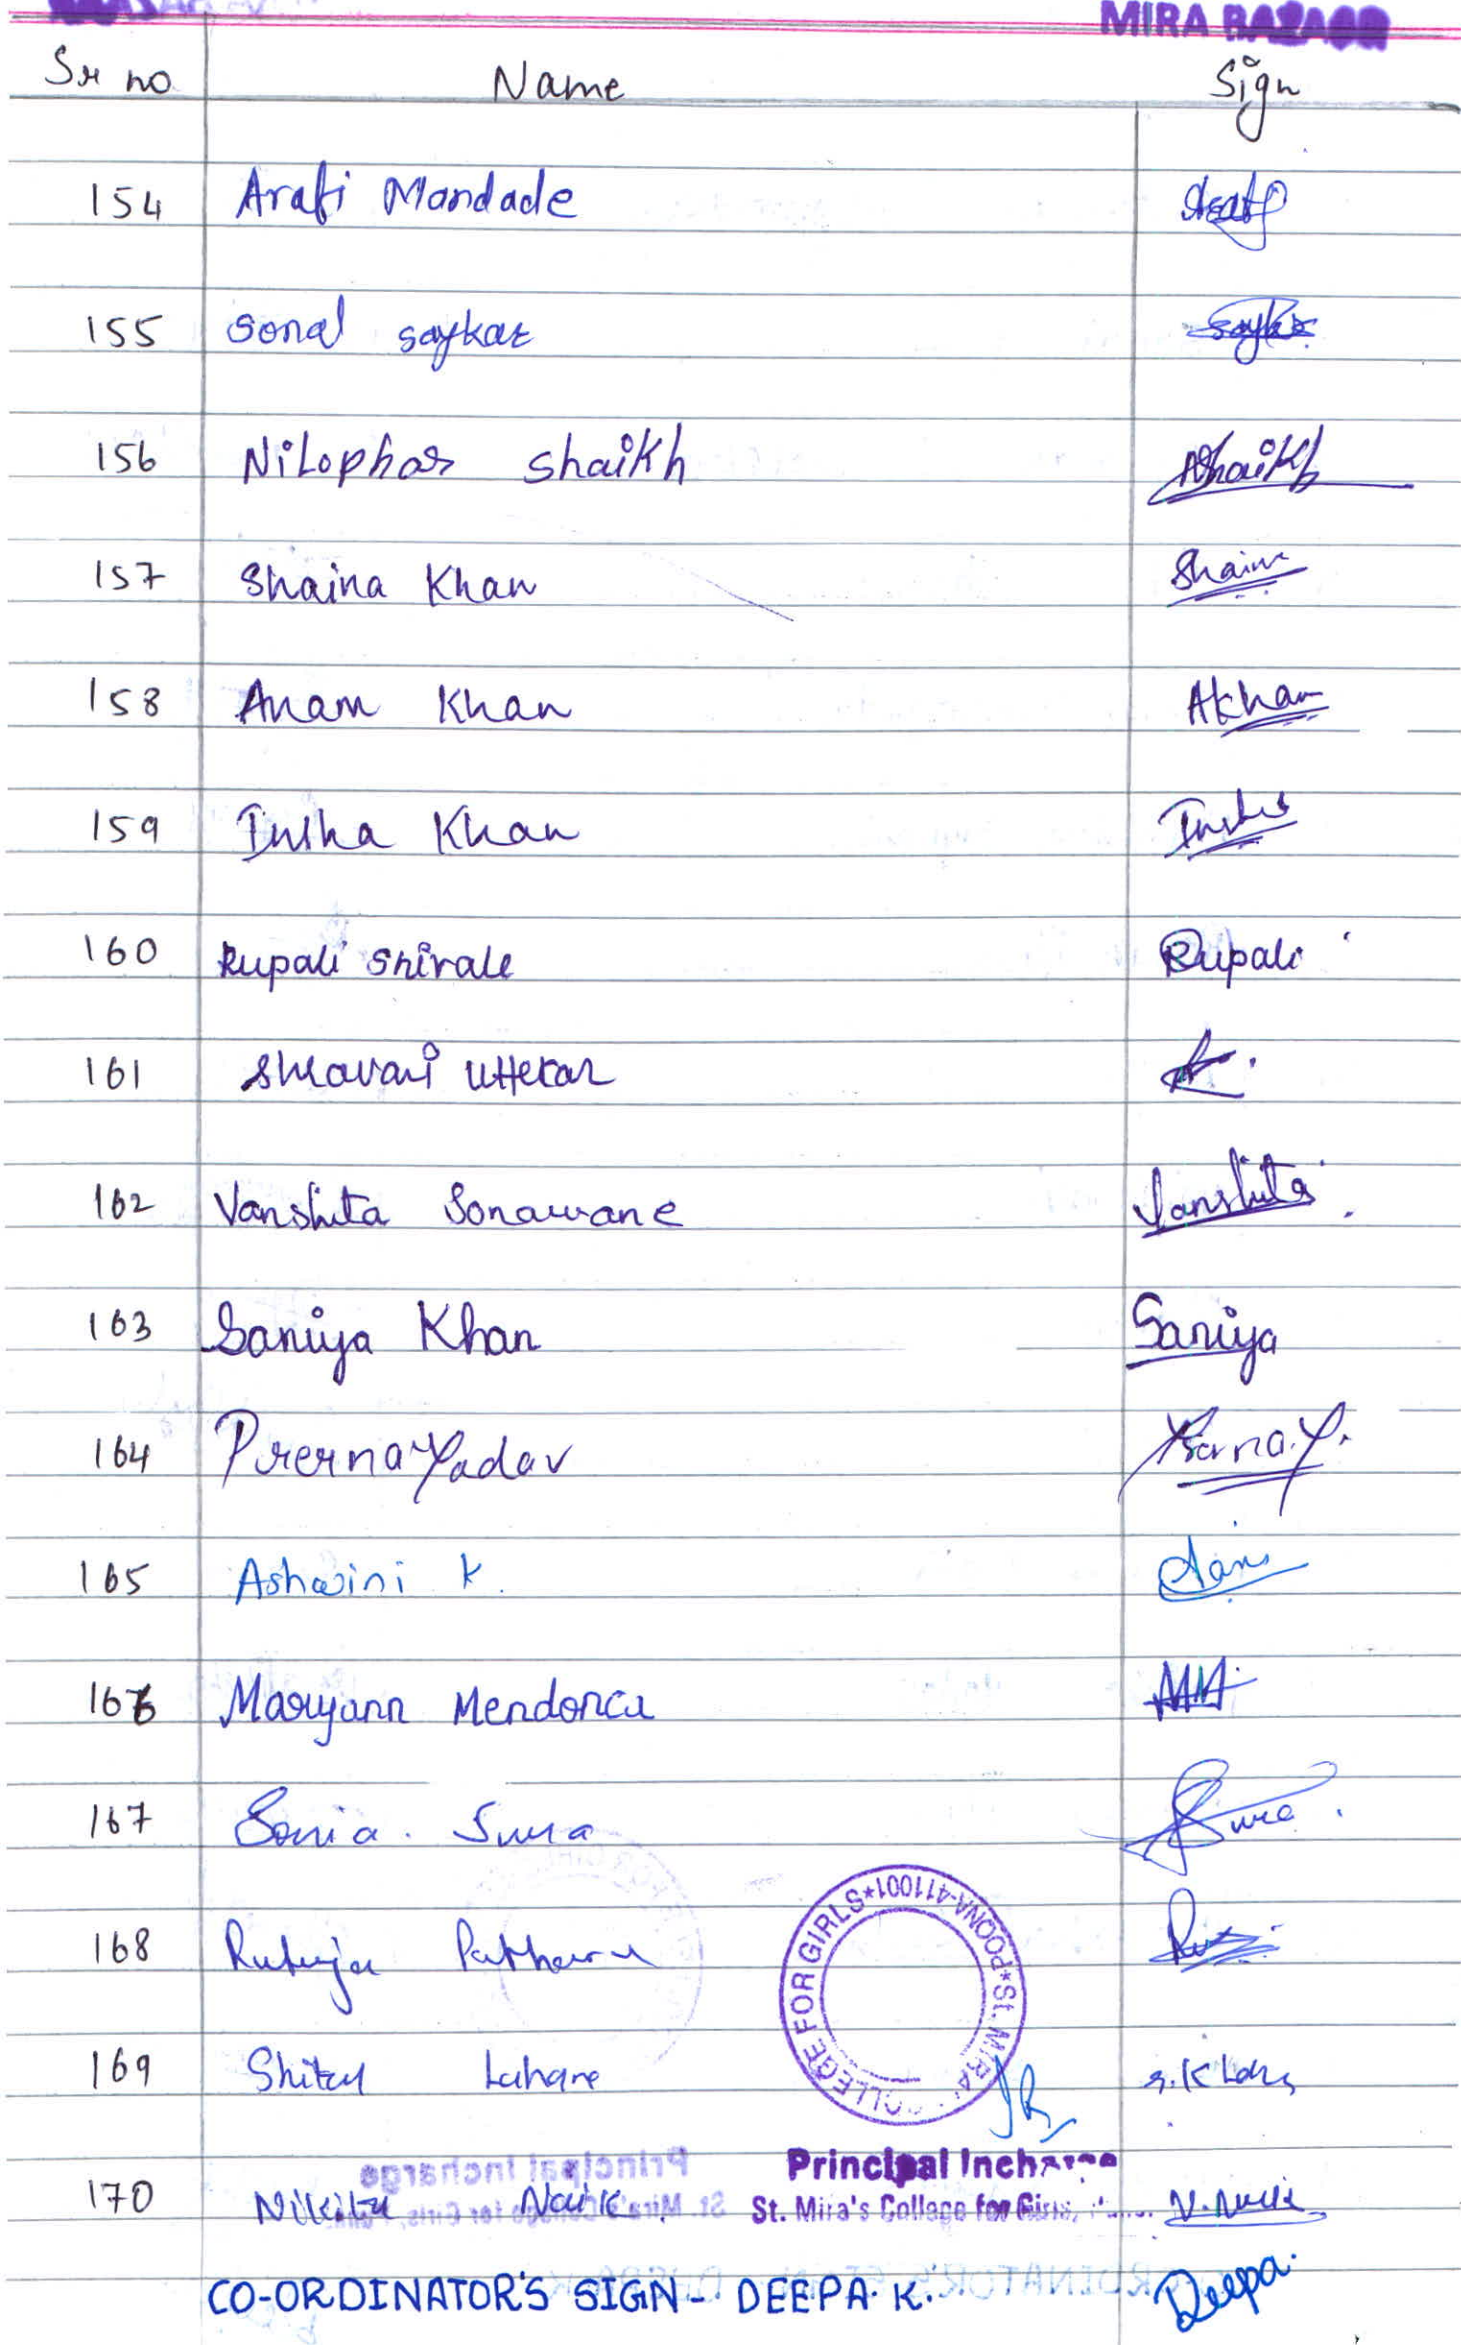 MIRA BAZAAR
Sr no Name Sign
154 Arati Mandade Arati
155 Sonal Saykar Saykar
156 Nilophar Shaikh NShaikh
157 Shaina Khan Shaina
158 Anam Khan AKhan
159 Insha Khan Insha
160 Rupali Shirale Rupali
161 Shravani Uttekar
162 Vanshita Sonawane Vanshita
163 Saniya Khan Saniya
164 Prerna Yadav Prerna.Y.
165 Ashwini K.
166 Maryann Mendonca MM
167 Sonia. Sura Sura
168 Rutuja Pathare
169 Shital Lahane
170 Nikita Naik. N.Naik
COLLEGE FOR GIRLS*POONA-411001*St. MIRA
Principal Incharge
St. Mira's College for Girls,
CO-ORDINATOR'S SIGN - DEEPA. K. Deepa.